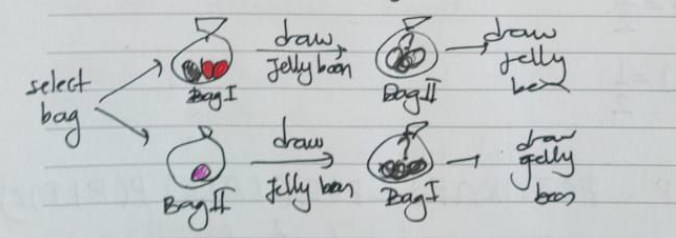 select
bag
Bag I
draw
Jelly bean
Bag II
draw
jelly
Bag II
draw
Jelly bean
?
Bag I
draw
jelly
bean